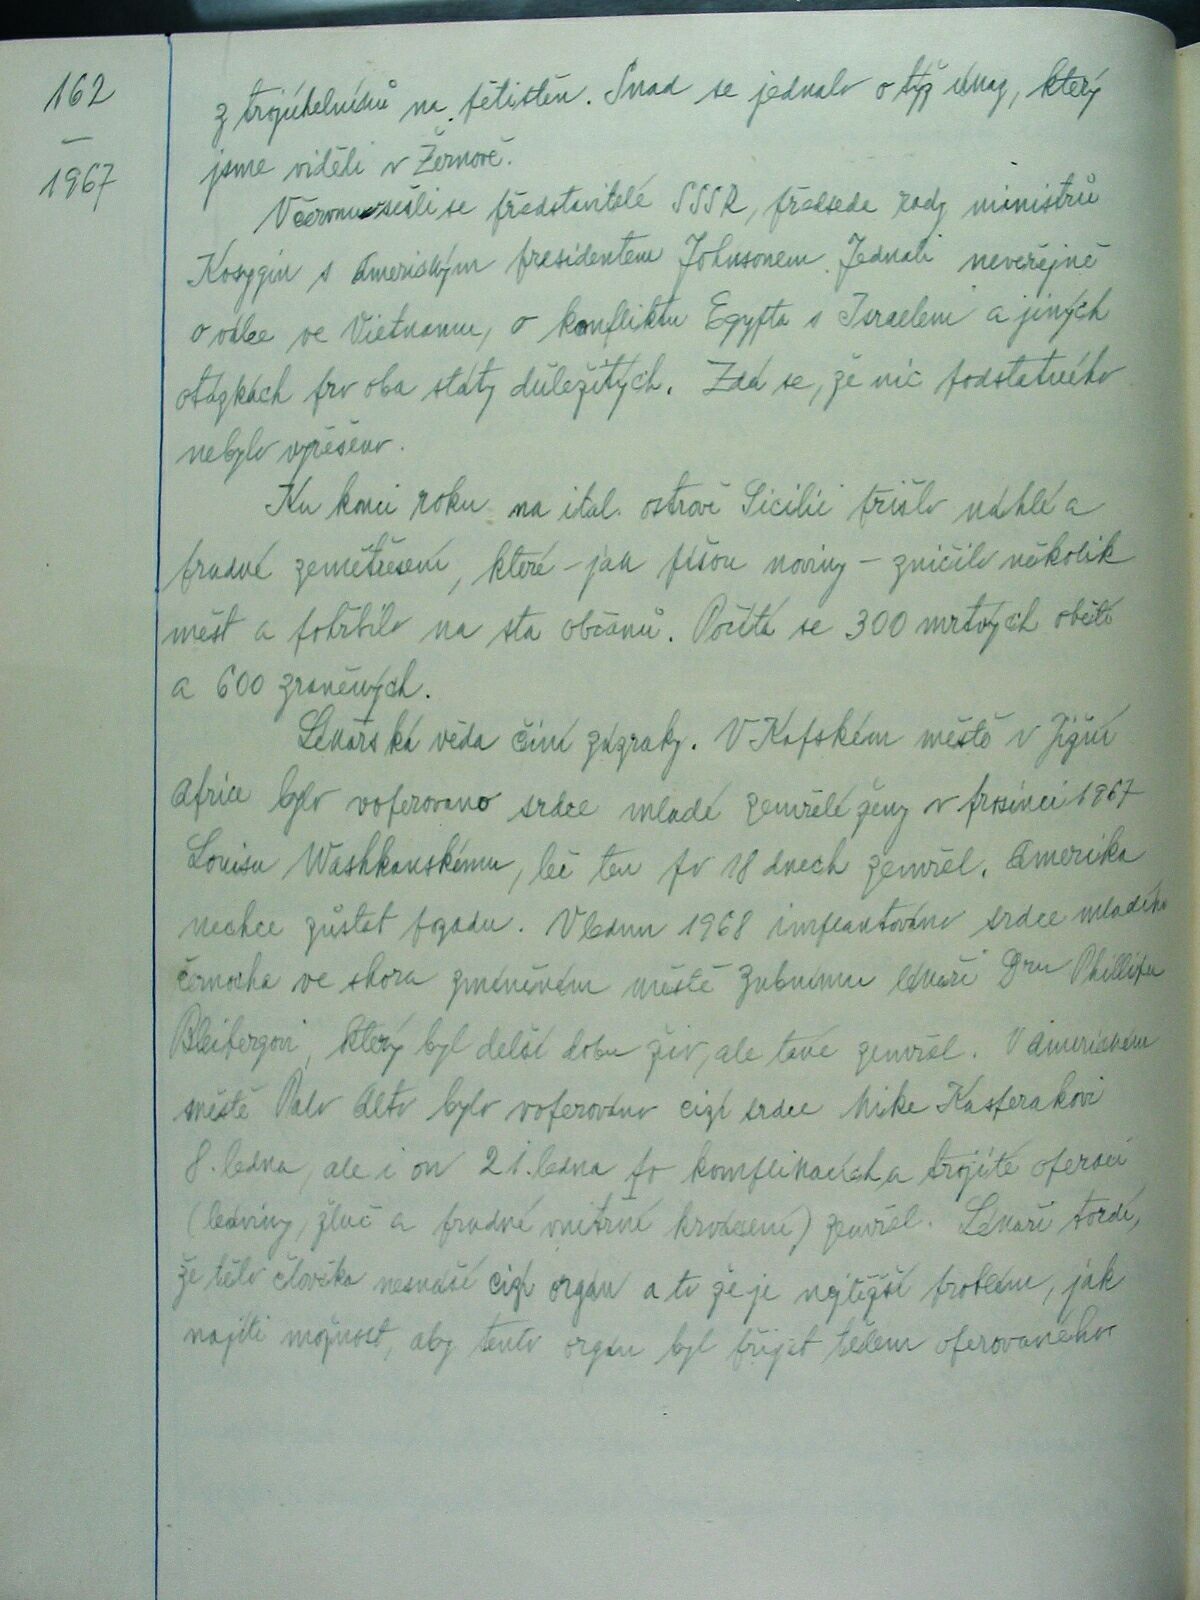 162
—
1967
z trojúhelníků na pětistěn. Snad se jednalo o týž úkaz, který
jsme viděli v Žernově.
V červnu sešli se představitelé SSSR, předseda rady ministrů
Kosygin s americkým presidentem Johnsonem. Jednali neveřejně
o válce ve Vietnamu, o konfliktu Egypta s Israelem a jiných
otázkách pro oba státy důležitých. Zdá se, že nic podstatného
nebylo vyřešeno.
Ku konci roku na ital. ostrově Sicilii přišlo náhlé a
prudké zemětřesení, které – jak píšou noviny – zničilo několik
měst a pohřbilo na sta občanů. Počítá se 300 mrtvých obětí
a 600 zraněných.
Lékařská věda činí zázraky. V Kapském městě v Jižní
Africe bylo voperováno srdce mladé zemřelé ženy v prosinci 1967
Louisu Washkanskému, leč ten po 18 dnech zemřel. Amerika
nechce zůstat pozadu. V lednu 1968 implantováno srdce mladého
černocha ve shora zmíněném městě zubnímu lékaři Dru Phillipu
Bleibergovi, který byl delší dobu živ, ale také zemřel. V americkém
městě Palo Alto bylo voperováno cizí srdce Mike Kasperakovi
8. ledna, ale i on 21. ledna po komplikacích a trojité operaci
(ledviny, žluč a prudké vnitřní krvácení) zemřel. Lékaři tvrdí,
že tělo člověka nesnáší cizí orgán a to že je nejtěžší problém, jak
najíti možnost, aby tento orgán byl přijat tělem operovaného.